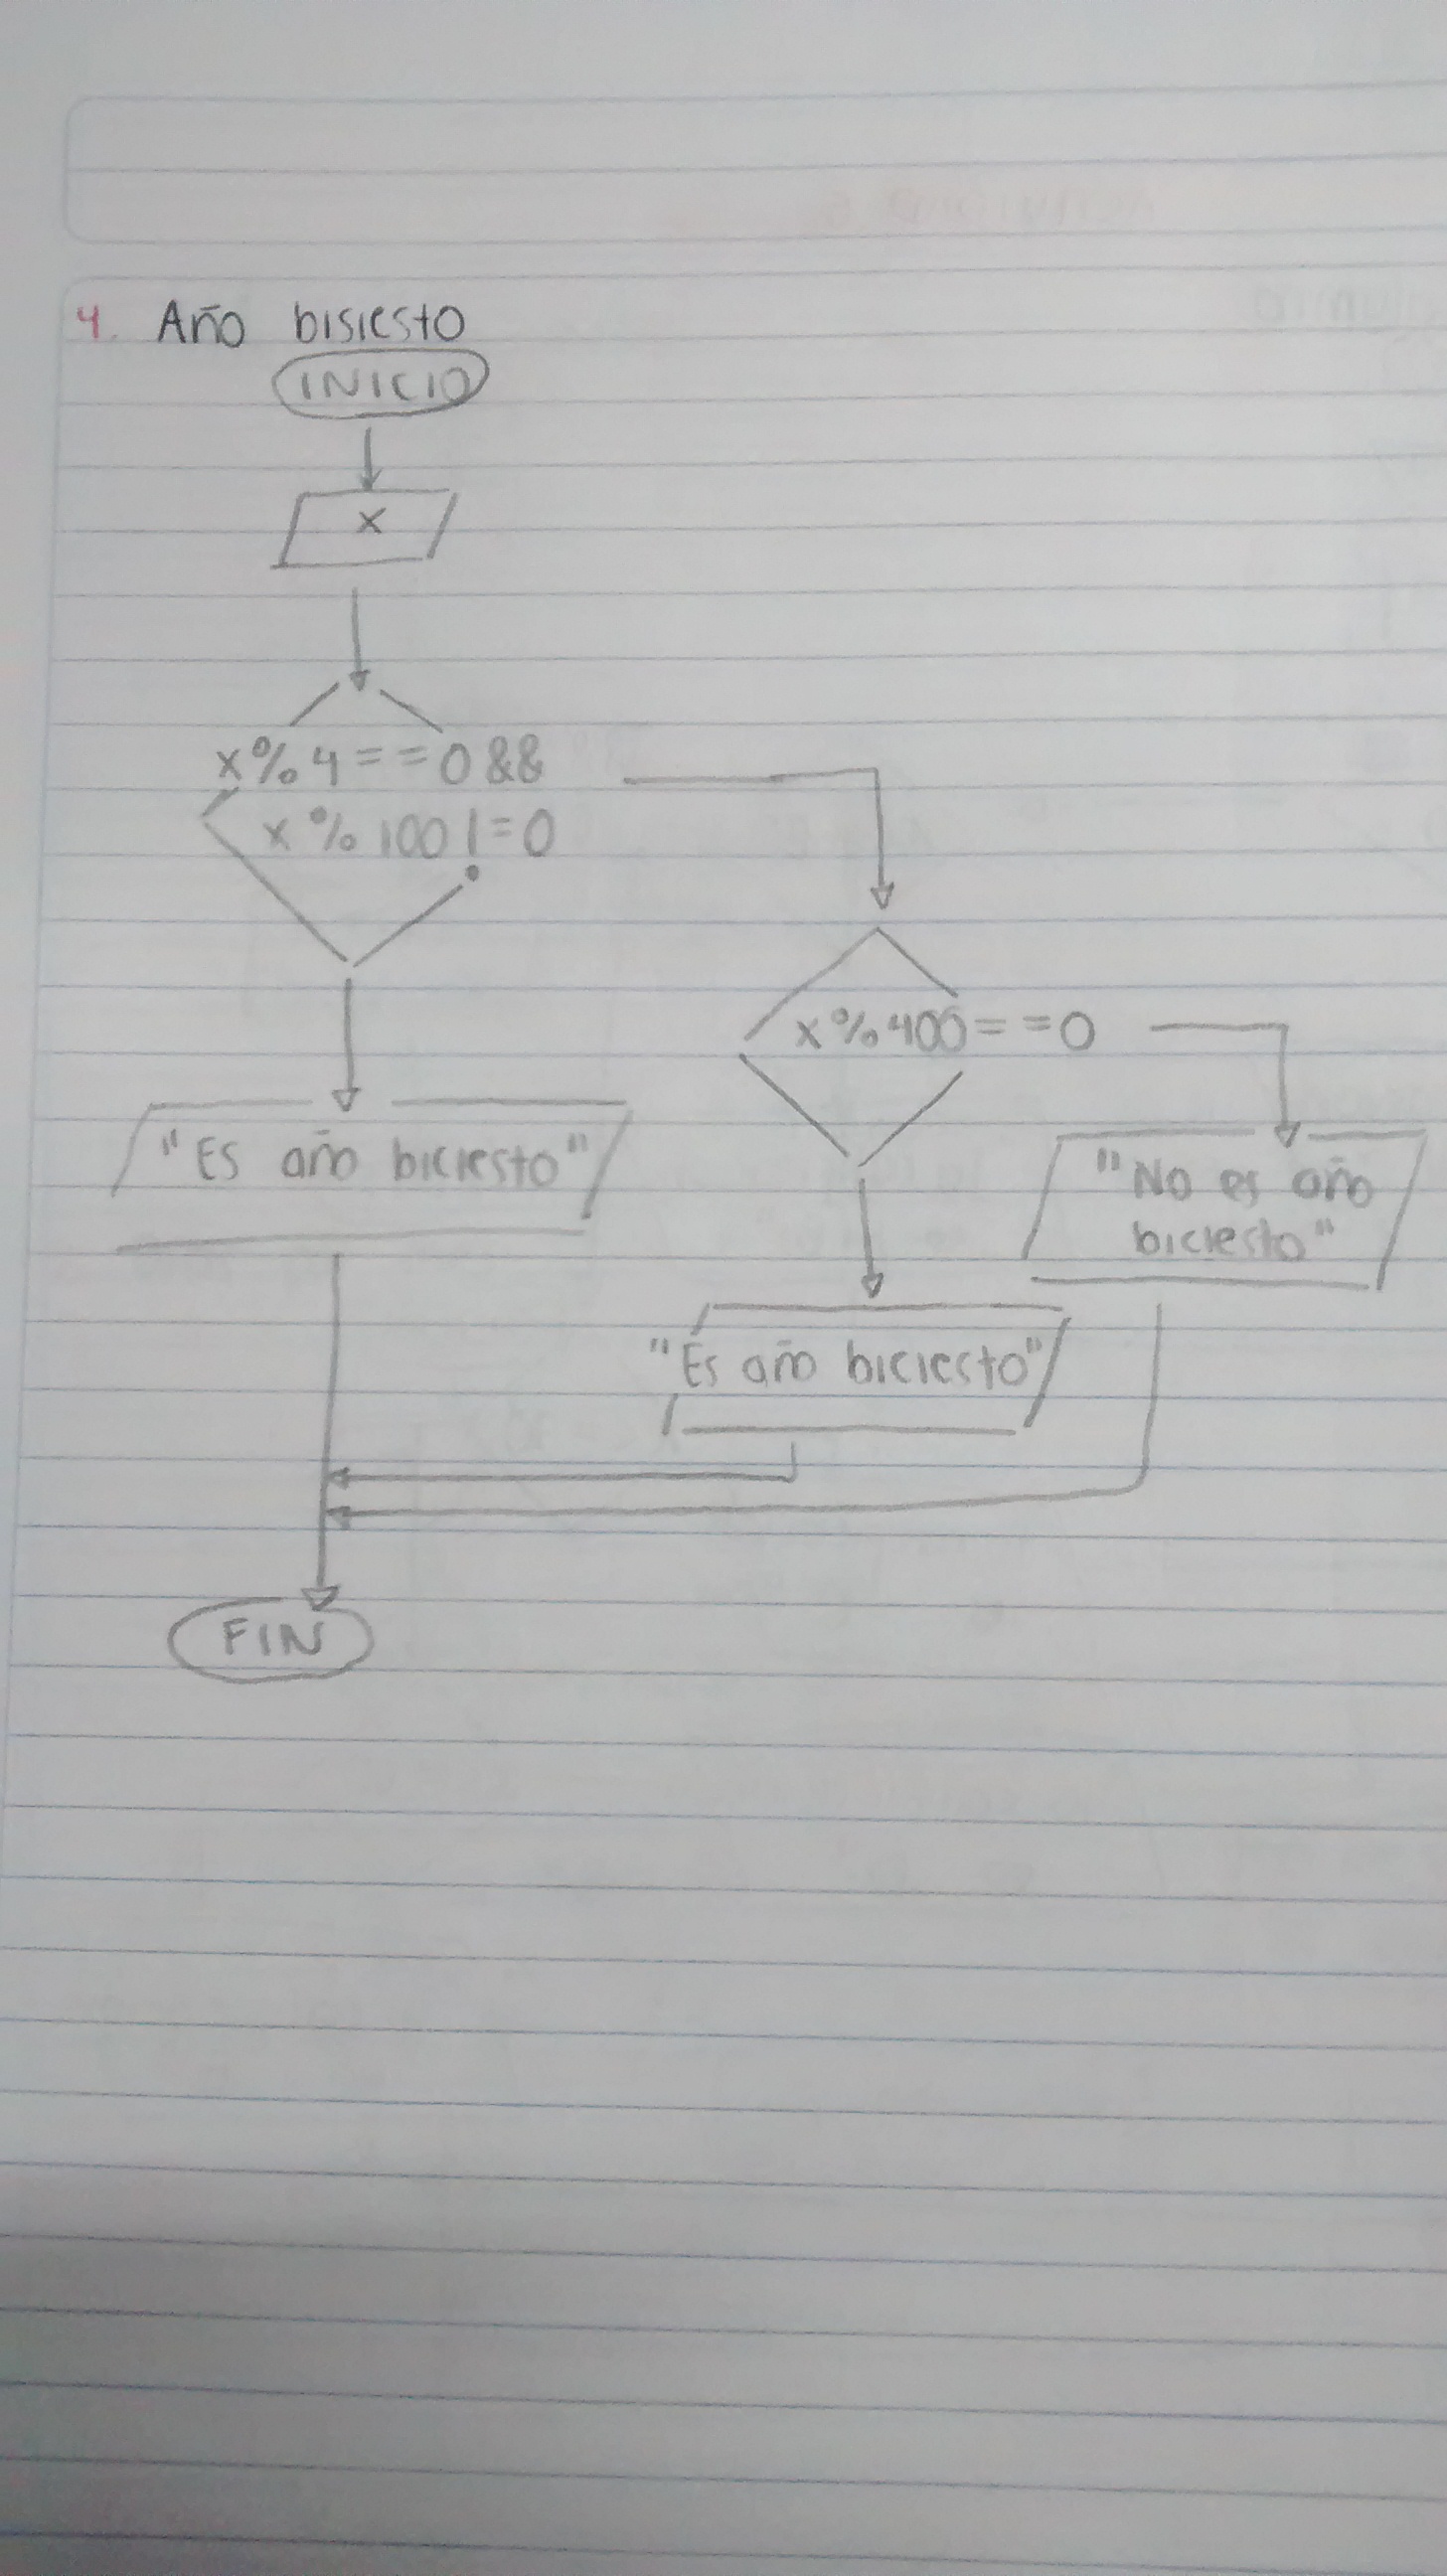 4. Año bisiesto
INICIO
x
x%4==0&&
x%100!=0
x%400==0
"Es año biciesto"
"No es año
biciesto"
"Es año biciesto"
FIN